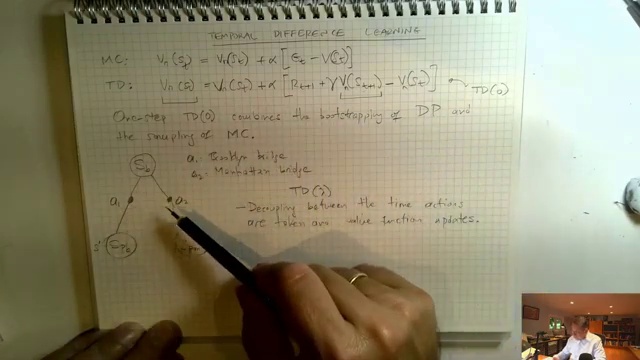 TEMPORAL DIFFERENCE LEARNING
MC: Vπ(St) = Vπ(St) + α [Gt − V(St)]
TD: Vπ(St) = Vπ(St) + α [Rt+1 + γVπ(St+1) − Vπ(St)]
TD(0)
One-step TD combines the bootstrapping of DP and
the sampling of MC.
Sb
a1: Brooklyn bridge
a2: Manhattan bridge
TD(λ)
a1
a2
- Decoupling between the time actions
are taken and value function updates.